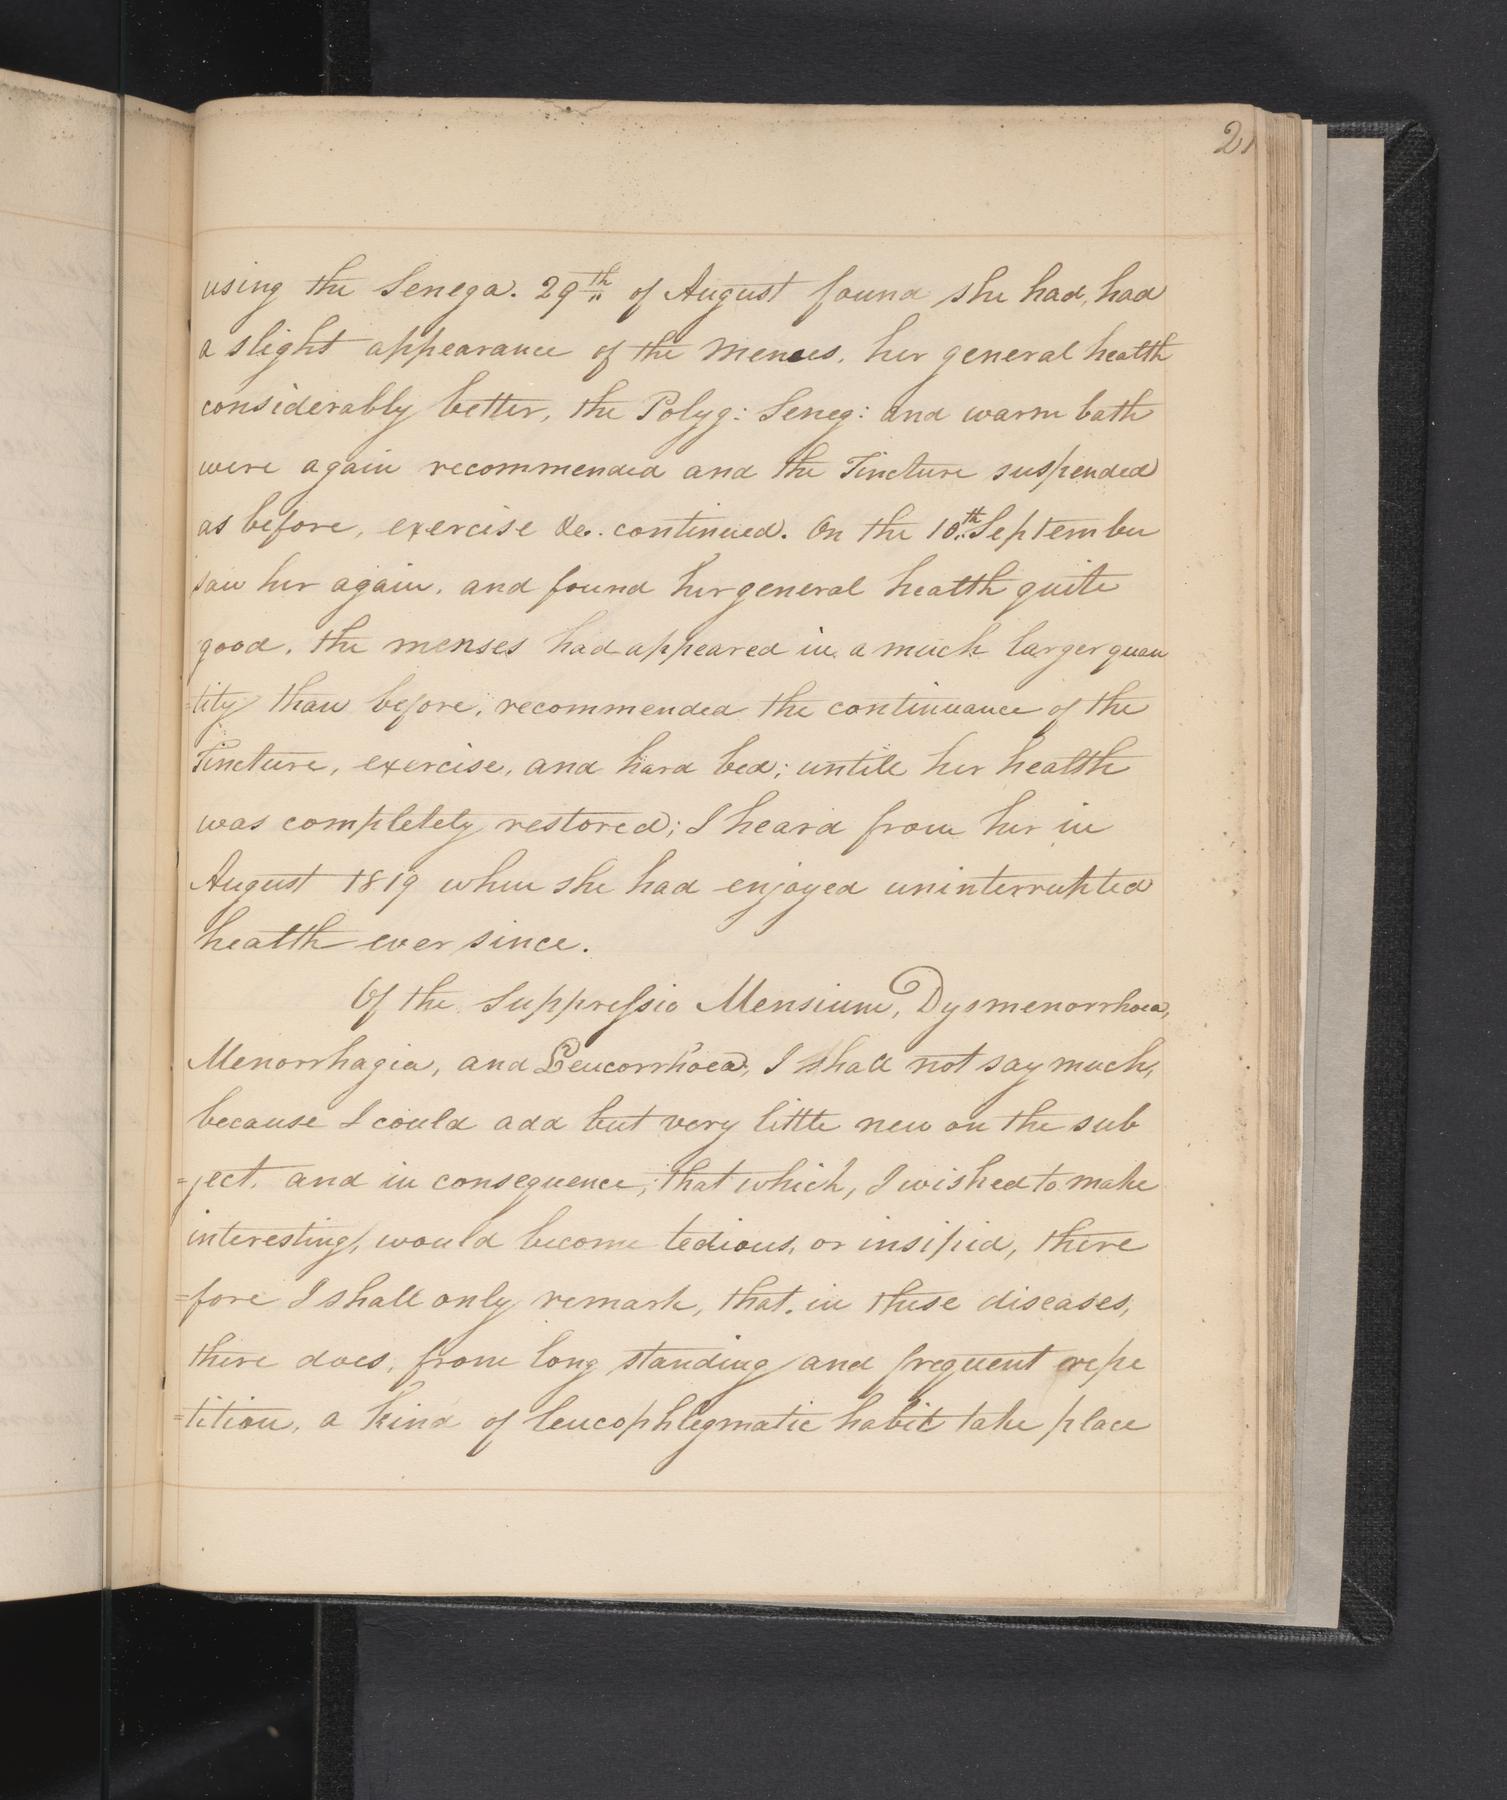 21
using the Senega. 29th of August found she had, had
a slight appearance of the Menses, her general health
considerably better, the Polyg: Seneg: and warm bath
were again recommended and the Tincture suspended
as before, exercise &c. continued. On the 10th September
saw her again, and found her general health quite
good, the menses had appeared in a much larger quan
=tity than before, recommended the continuance of the
Tincture, exercise, and hard bed; untill her health
was completely restored; I heard from her in
August 1819 when she had enjoyed uninterrupted
health ever since.
Of the Suppreſsio Mensium, Dysmenorrhoea,
Menorrhagia, and Leucorrhoea, I shall not say much,
because I could add but very little new on the sub
=ject, and in consequence, that which, I wished to make
interesting, would become tedious, or insipid, there
=fore I shall only remark, that, in these diseases,
there does, from long standing and frequent repe
=tition, a kind of leucophlegmatic habit take place